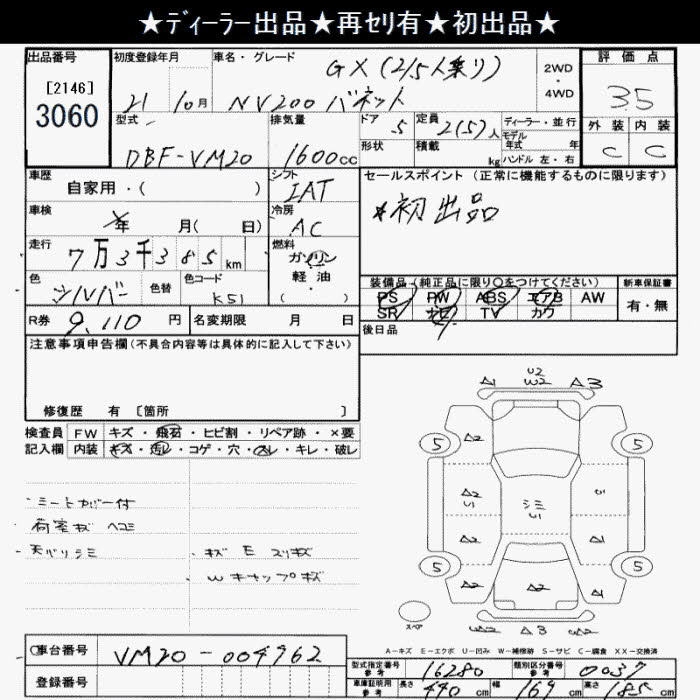 ★ディーラー出品★再セリ有★初出品★
出品番号
[2146]
3060
初度登録年月
21 10月
車名・グレード
GX (2/5人乗り)
NV200 バネット
2WD
・
4WD
評価点
3.5
外装 内装
C C
型式
DBF-VM20
排気量
1600cc
ドア 5
形状
定員 2(5)人
積載 kg
ディーラー・並行
モデル
年式 年
ハンドル 左・右
車歴
自家用・( )
シフト
IAT
セールスポイント(正常に機能するものに限ります)
*初出品
車検
年 月( 日)
冷房
AC
走行
7万3千385km
燃料
ガソリン
軽・油
・( )
色
シルバー
色替
色コード
K51
装備品(純正品に限り○をつけてください)
PS PW ABS エアB AW
SR ナビ TV カワ
新車保証書
有・無
R券 9,110円
名変期限 月 日
後日品
注意事項申告欄(不具合内容等は具体的に記入して下さい)
修復歴 有 [箇所 ]
検査員 FW キズ・飛石・ヒビ割・リペア跡・×要
記入欄 内装 キズ・汚レ・コゲ・穴・凸レ・キレ・破レ
・シートカバー付
荷室キズ ヘコミ
・天バリシミ
・キズ E スリキズ
W キャップキズ
A1 U2 W2 A3
5 A2 5
A2
シミ
A2 A1
5 5
A2 A2 A1
A3
スペア
A-キズ E-エクボ U-凹み W-補修跡 S-サビ C-腐食 XX-交換済
車台番号 VM20-004962
登録番号
型式指定番号
参考 16280
類別区分番号
参考 0037
車庫証明用
参考 長さ 440cm 幅 169cm 高さ 185cm